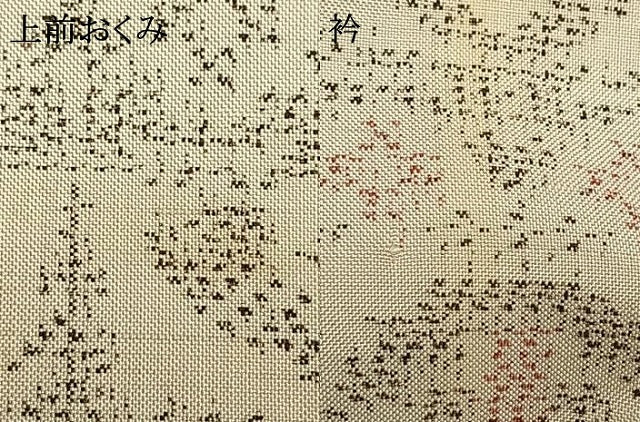 上前おくみ
衿